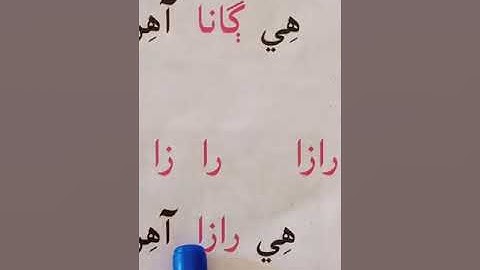 هِي ڳانا آهِن
رازا را زا
هِي رازا آهِن